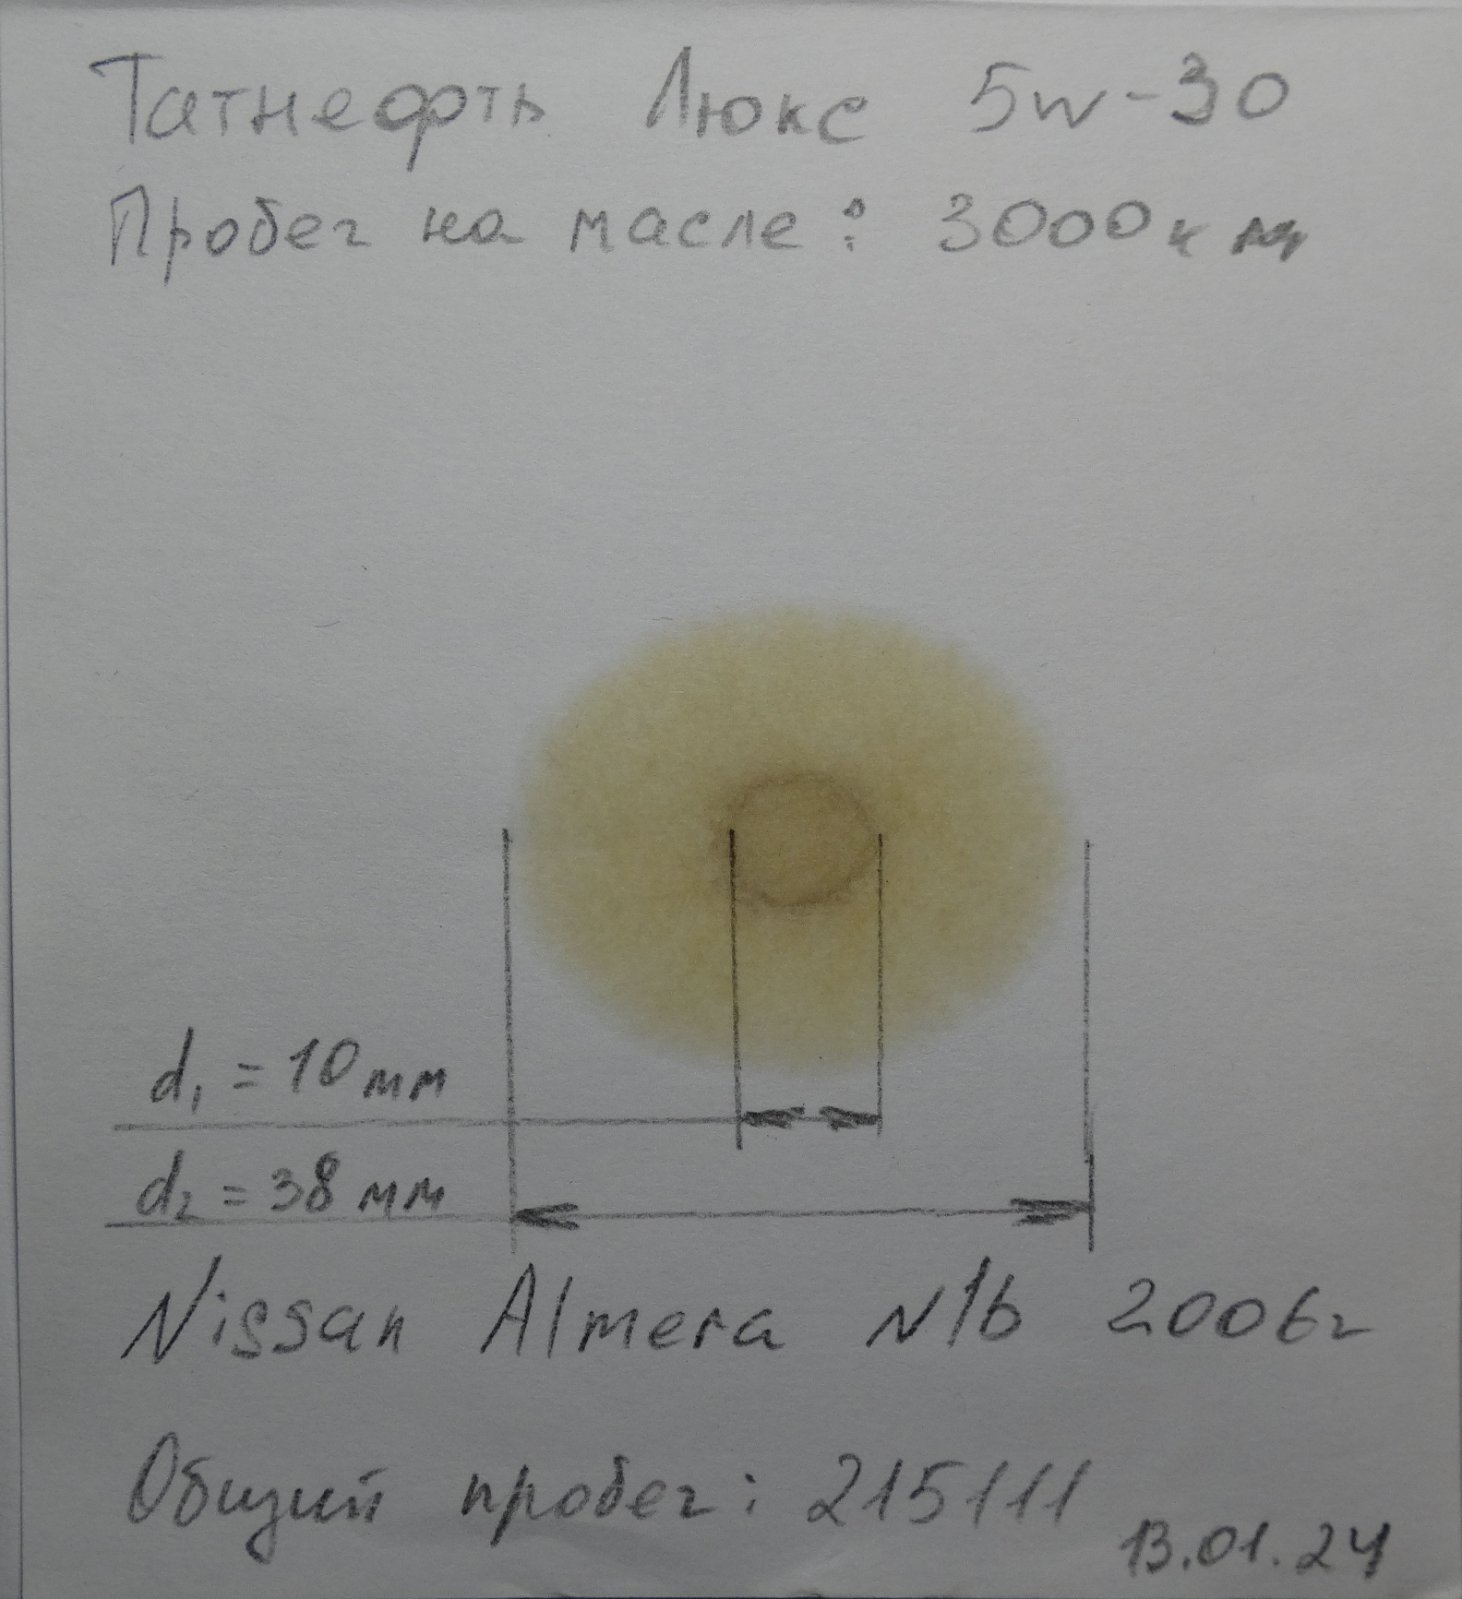 Татнефть Люкс 5w-30
Пробег на масле: 3000км
d₁ = 10мм
d₂ = 38мм
Nissan Almera N16 2006г
Общий пробег: 215111
13.01.24